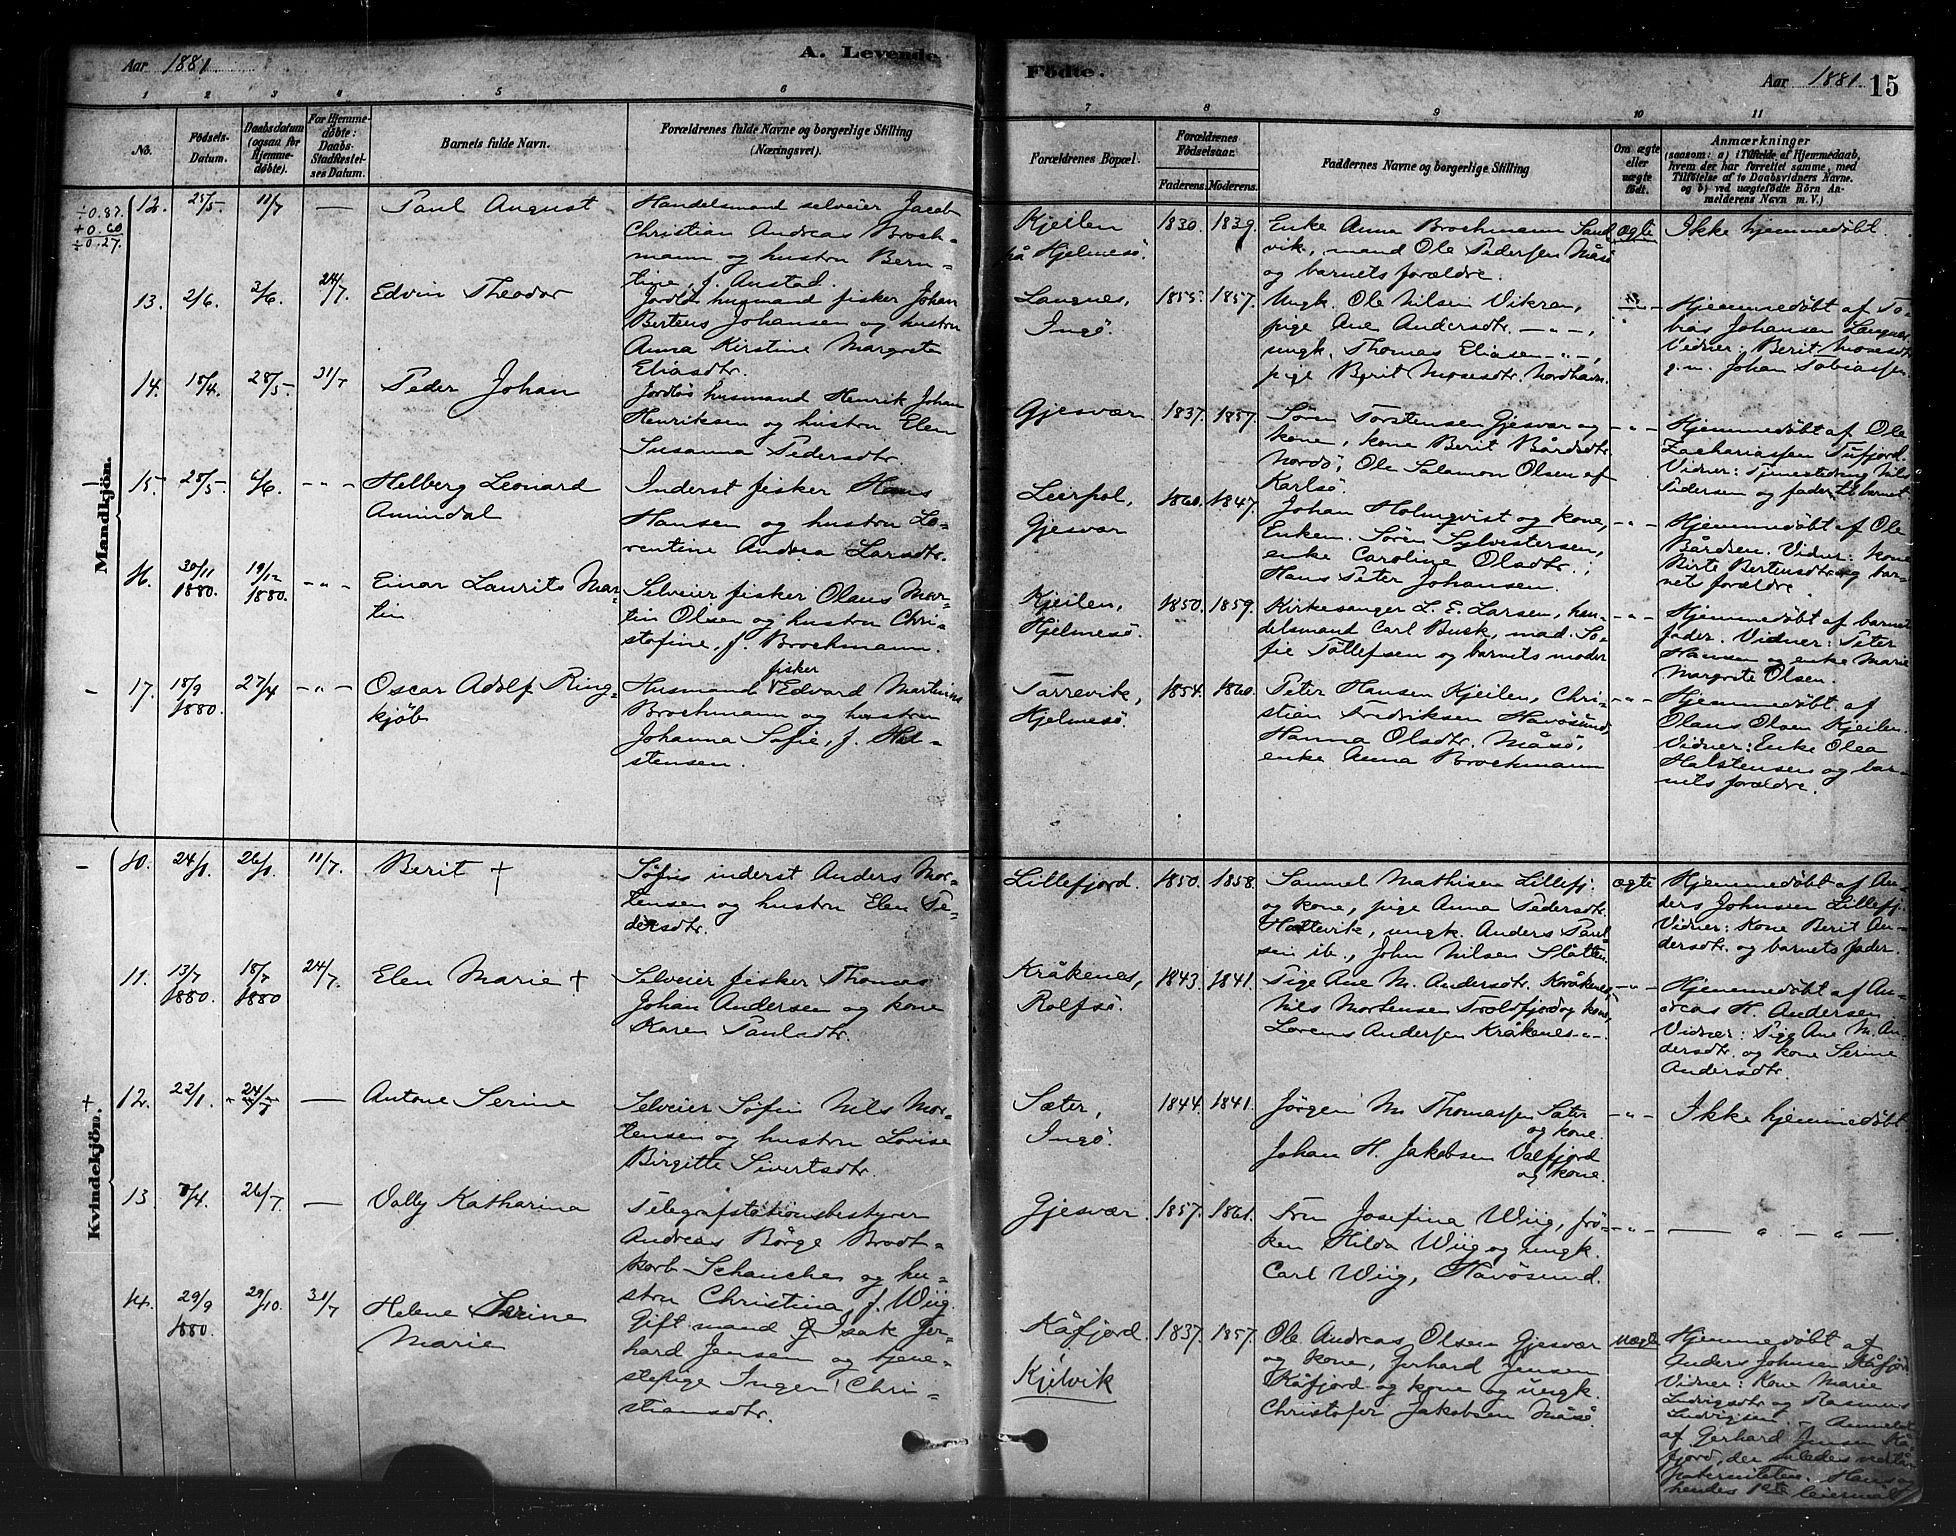 Aar 1881
A. Levende
Fødte.
Aar 1881.
15
1 2 3 4 5 6 7 8 9 10 11
No.
Fødsels-
Datum.
Daabsdatum
(ogsaa for
Hjemme-
døbte).
For Hjemme-
døbte:
Daabs-
Stadfæstel-
ses Datum.
Barnets fulde Navn.
Forældrenes fulde Navne og borgerlige Stilling
(Næringsvei).
Forældrenes Bopæl.
Forældrenes
Fødselsaar.
Faderens. Moderens.
Faddernes Navne og borgerlige Stilling
Om ægte
eller
uægte
født.
Anmærkninger
(saasom: a) i Tilfælde af Hjemmedaab,
hvem der har forrettet samme, med
Tilføielse af to Daabsvidners Navne.
og b) ved uægtefødte Børn An-
melderens Navn m. V.)
÷0.87.
+0.60
÷0.27.
Mandkjøn.
12. 25/5- 11/7 — Paul August
Handelsmand selveier Jacob
Christian Andreas Broch-
mann og hustru Bern-
tine, f. Anstad.
Kjeilen
på Hjelmesö.
1830. 1839.
Enke Anna Brochmann Sand
vik, mand Ole Pedersen Måsö
og barnets forældre.
ægte
Ikke hjemmedøbt.
13. 2/6. 3/6. 24/7. Edvin Theodor
Jordløs husmand fisker Johan
Bertens Johansen og hustru
Anna Kirstine Margrete
Eliasdtr.
Langnes,
Ingö.
1855 1857.
Ungk. Ole Nilsen Vikran,
pige Ane Andersdtr. — " —,
ungk. Thomas Eliasen — " —,
pige Berit Mosesdtr. Nordhavn.
Hjemmedøbt af To-
bias Johansen Langnæs.
Vidner: Berit Mosesdtr
g.m. Johan Tobiassen.
14. 15/4. 28/5- 31/7 Peder Johan
Jordløs husmand Henrik Johan
Henriksen og hustru Elen
Susanna Pedersdtr.
Gjesvær
1837. 1857.
Søren Torstensen Gjesvær og
kone, kone Berit Bårdsdtr
Nordö, Ole Salamon Olsen af
Karlsö.
- " -
Hjemmedøbt af Ole
Zachariassen Tufjord.
Vidner: Tjenestedreng Nils
Pedersen og fader til barnet
15. 28/5- 6/6. - " - Helberg Leonard
Amindal
Inderst fisker Hans
Hansen og hustru La-
rentine Andrea Larsdtr.
Leirpol,
Gjesvær
1860. 1847.
Johan Holmqvist og kone,
Enkem. Søren Sylvestersen,
enke Caroline Olsdtr.,
Hans Peter Johansen.
- " -
Hjemmedøbt af Ole
Bårdsen. Vidner: Kone
Birte Bertensdtr og bar-
nets forældre.
16. 30/11 1880. 19/12 1880. - " - Einar Laurits Mar-
tin
Selveier fisker Olaus Mar-
tin Olsen og hustru Chri-
stofine, f. Brochmann.
Kjeilen,
Hjelmesö.
1850. 1859.
Kirkesanger L. E. Larsen, han-
delsmand Carl Busk, mad. So-
fie Tollefsen og barnets moder
- " -
Hjemmedøbt af barnets
fader. Vidner: Peter
Hansen og enke Marie
Margrete Olsen.
17. 18/9 1880. 27/4 - " - Oscar Adolf Ring-
kjøb
Husmand fisker Edvard Martinus
Brochmann og hustru
Johanna Sofie, f. Hal-
stensen.
Tarrevik,
Hjelmesö.
1854. 1860.
Peter Hansen Kjeilen, Chri-
stian Fredriksen Havösund,
Hanna Olsdtr. Måsö,
enke Anna Brochmann
- " -
Hjemmedøbt af
Olaus Olsen Kjeilen.
Vidner: Enke Olea
Halstensen og bar-
nets forældre.
Kvindekjøn.
10. 24/1. 26/1. 11/7. Berit †
Søfin inderst Anders Mor-
tensen og hustru Elen Pe-
dersdtr.
Lillefjord.
1850. 1858.
Samuel Mathisen Lillefj.
og kone, pige Anna Pedersdtr.
Hattevik, ungk. Anders Paul-
sen ib., John Nilsen Slåtten.
ægte
Hjemmedøbt af An-
ders Johnsen Lillefj.
Vidner: Kone Berit An-
dersdtr. og barnets fader.
11. 13/7 1880. 18/7 1880 24/7. Elen Marie †
Selveier fisker Thomas
Johan Andersen og kone
Karen Paulsdtr.
Kråkenes,
Rolfsö.
1843. 1841.
Pige Ane M. Andersdtr. Kråkenes,
Nils Mortensen Troldfjord og kone,
Lorens Andersen Kråkenes - " -
- " -
Hjemmedøbt af An-
dreas H. Andersen
Vidner: Pige Ane M. An-
dersdtr. og kone Serine
Andersdtr.
12. 22/1. 24/7 — Antone Serine
Selveier Søfin Nils Mor-
tensen og hustru Lovise
Birgitte Sivertsdtr.
Sæter,
Ingö.
1844. 1841.
Jörgen M. Thomassen Sæter
og kone.
Johan H. Jakobsen Valfjord
og kone.
- " -
Ikke hjemmedøbt
13. 8/4. 26/7. — Vally Katharina
Telegrafstationsbestyrer
Andreas Börge Brodt-
korb Schanche og hu-
stru Christina, f. Wiig.
Gjesvær.
1857. 1861.
Fru Josefina Wiig, frö-
ken Hilda Wiig og ungk.
Carl Wiig, Havösund.
- " -
— " — " —
14. 29/9 1880. 29/10. 31/7 Helene Serine
Marie
Gift mand Isak Ger-
hard Jensen og tjene-
stepige Inger Chri-
stiansdtr.
Kåfjord.
Kjelvik
1837. 1857.
Ole Andreas Olsen Gjesvær
og kone, Gerhard Jensen
Kåfjord og kone og ungk.
Christofer Jakobsen Måsö.
uægte
Hjemmedøbt af
Anders Johnsen Kåfjord
Vidner: Kone Marie
Ludvigsdtr og Rasmus
Ludvigsen. Anmeldt
af Gerhard Jensen Kå-
fjord, der således
paterniteten. Hans og
hendes 1ste leiermål